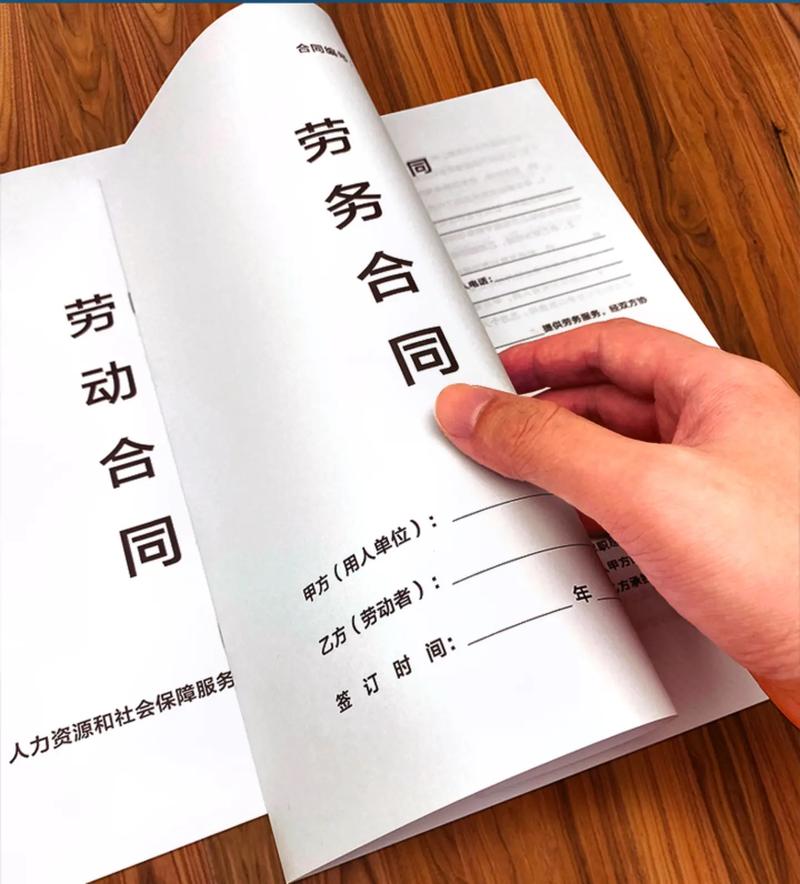 劳动合同
人力资源和社会保障服务
合同编号
劳务合同
甲方（用人单位）：
乙方（劳动者）：
签订时间： 年
同
人电话：
提供劳务服务，经双方协